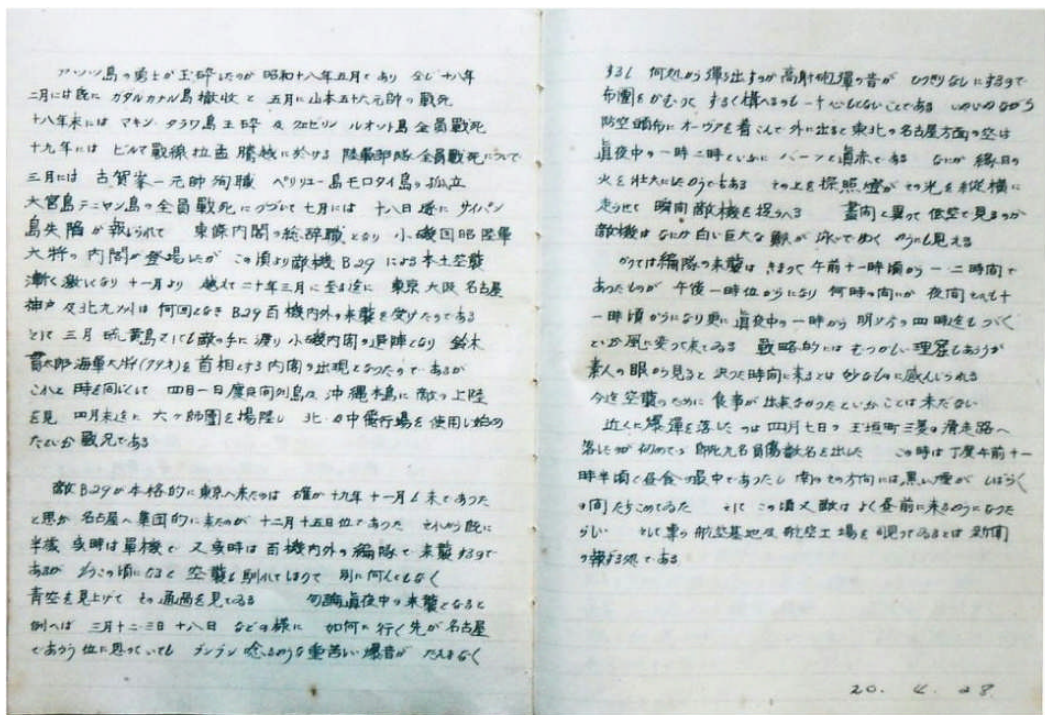 アッツ島の勇士が玉砕したのが 昭和十八年五月であり 全じ十八年
二月には既に ガダルカナル島撤收と 五月に山本五十六元帥の戰死
十八年末には マキン タラワ島玉砕 及 クェゼリン ルオット島全員戰死
十九年には ビルマ戰線拉孟騰越に於ける 陸軍部隊全員戰死について
三月には 古賀峯一元帥殉職 ペリリュー島モロタイ島の孤立
大宮島テニヤン島の全員戰死につづいて七月には 十八日遂に サイパン
島失陥が報じられて 東條内閣の総辞職となり 小磯国昭陸軍
大將の内閣が登場したが この頃より敵機B.29による本土空襲
漸く激しくなり十一月より 越えて二十年三月に至る迄に 東京大阪名古屋
神戸及北九州は何回となきB29百機内外の来襲を受けたのである
そして三月 硫黄島すらも敵の手に渡り小磯内閣の退陣となり 鈴木
貫太郎海軍大將(クタオ)を首相とする内閣の出現となったのであるが
これと時を同じくして 四日一日慶良間列島及 沖縄本島に敵の上陸
を見 四月末迄に 六ヶ師團を揚陸し 北・中飛行場を使用し始め
たといふ戰況である
敵B29が本格的に東京へ来たのは 確か十九年十一月も末であつた
と思ふ 名古屋へ集団的に来たのが十二月十五日位であつた それから既に
半歳 或時は單機で 又或時は百機内外の編隊で来襲するので
あるが もうこの頃になると 空襲も馴れてしまつて 別に何んともなく
青空を見上げて その通過を見てゐる 勿論眞夜中の来襲となると
例へば 三月十二・三日 十八日 などの様に 如何に行く先が名古屋
であらう位に思っていても ブンブン唸るような重苦しい爆音が たえまなく
するし 何処から彈き出すのか高射砲彈の音が ひつきりなしにするので
布團をかむつて するく構へるのも一寸心もとないことである いやいやながら
防空頭巾にオーヴァを着こんで外に出ると東北の名古屋方面の空は
眞夜中の一時二時といふに パーッと眞赤である なにか縁日の
火を壮大にしたやうでもある その上を探照燈がその光を縦横に
走らせて 瞬間敵機を捉らへる 晝間と異って低空で見るのか
敵機はなにか白い巨大な獸が泳いでゆくやうにも見える
かつては編隊の来襲は きまつて午前十一時頃から一二時間で
あつたものが 午後一時位からになり 何時の間にか 夜間それも十
一時頃からになり更に眞夜中の一時から 明け方の四時迄もつづく
といふ風に変って来てゐる 戰略的にはむつかしい理窟もあらうが
素人の眼から見ると 決った時間に来るとは妙なものに感んじられる
今迄空襲のために 食事が出来なかつたといふことは未だない
近くに爆彈を落したのは 四月七日の玉垣町三菱の滑走路へ
落したのが初めで 即死九名負傷数名を出した この時は丁度午前十一
時半頃で昼食の最中であつたし 南のその方向には黒い煙が しばらく
の間たちこめてゐた そして この頃又敵は よく昼前に来るやうになつた
らしい そして軍の航空基地及航空工場を覗つてゐるとは 新聞
の報ずる処である
20. 4. 28.